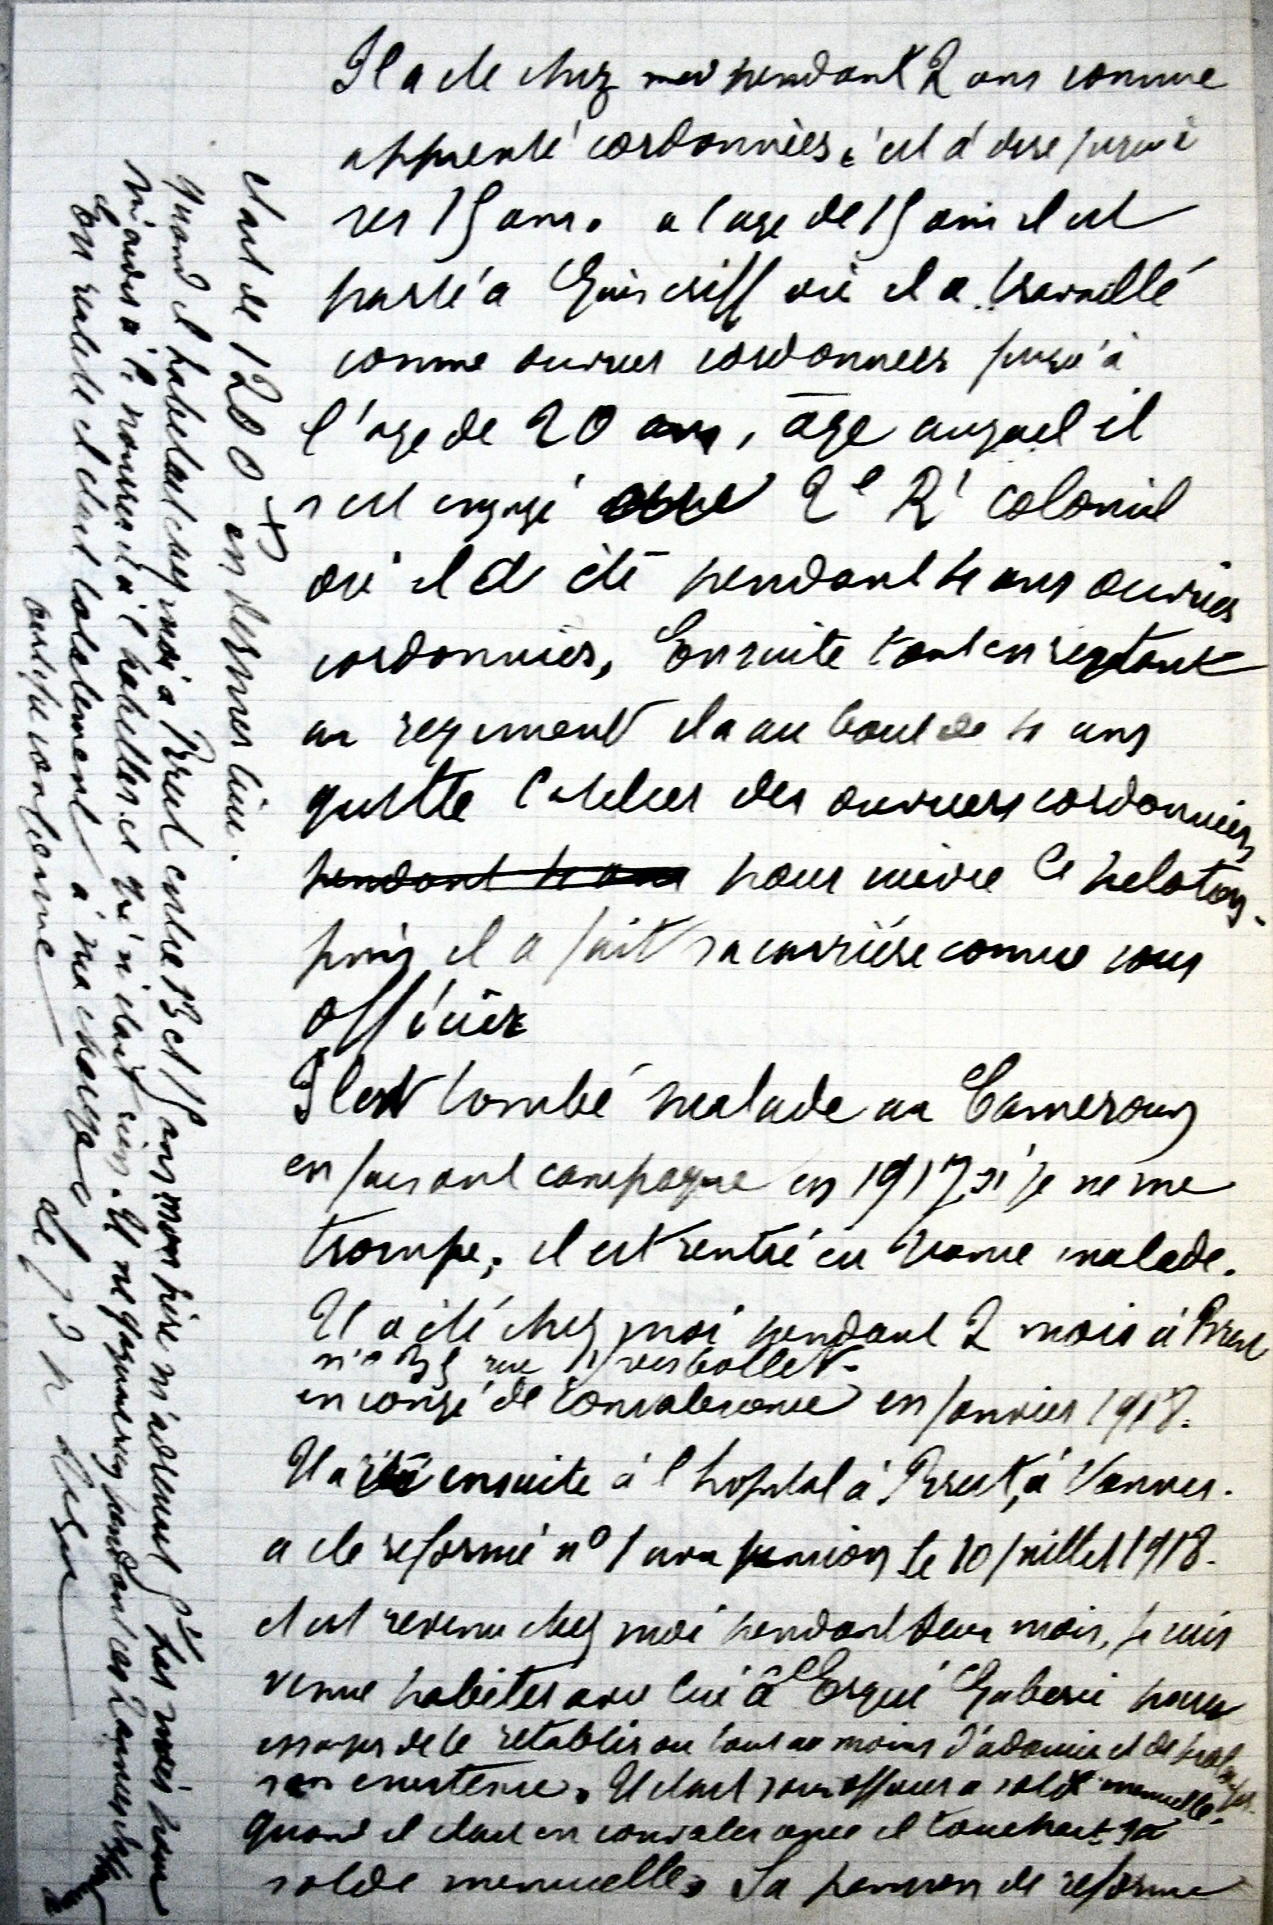 Il a été chez moi pendant 2 ans comme
apprenti cordonnier, c'est à dire jusqu'à
ses 15 ans. a l'age de 15 ans il est
parti à Guiscriff où il a travaillé
comme ouvrier cordonnier jusqu'à
l'age de 20 ans, âge auquel il
s'est engagé 2e Rt colonial
où il a été pendant 4 ans ouvrier
cordonnier, Ensuite tout en restant
au regiment il a au bout de 4 ans
quitté l'atelier des ouvriers cordonniers
pendant 4 ans pour suivre le peloton.
puis il a fait sa carrière comme sous
officier
Il est tombé malade au Cameroun
en faisant campagne en 1917, si je ne me
trompe, il est rentré en France malade.
Il a été chez moi pendant 2 mois à Brest
n° 35 rue
en congé de convalescence en janvier 1918.
Il a été ensuite à l'hopital à Brest, à Vannes.
a été reformé n° 1 avec pension le 10 juillet 1918.
il est revenu chez moi pendant deux mois, je suis
venue habiter avec lui à Ergué Gaberic pour
essayer de le retablir ou tout au moins d'adoucir et de prolonger
son existence. Il etait sous officier a solde mensuelle.
quand il etait en convalescence il touchait sa
solde mensuelle. Sa pension de reforme
etait de 1200 F en dernier lieu.
quand il habitait chez moi à Brest entre 13 et 15 ans mon père m'adressait tous les mois pour
m'aider à le nourrir et à l'habiller et qu'il n'etait rien. Il ne gagnait rien pendant ces 2 années
En realité il etait totalement à ma charge